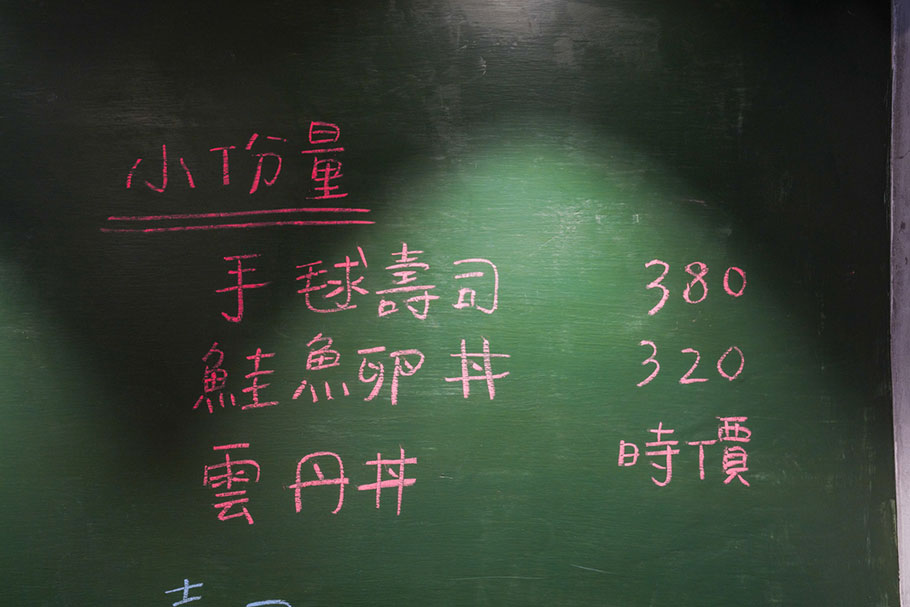 小份量
手毬壽司 380
鮭魚卵丼 320
雲丹丼 時價